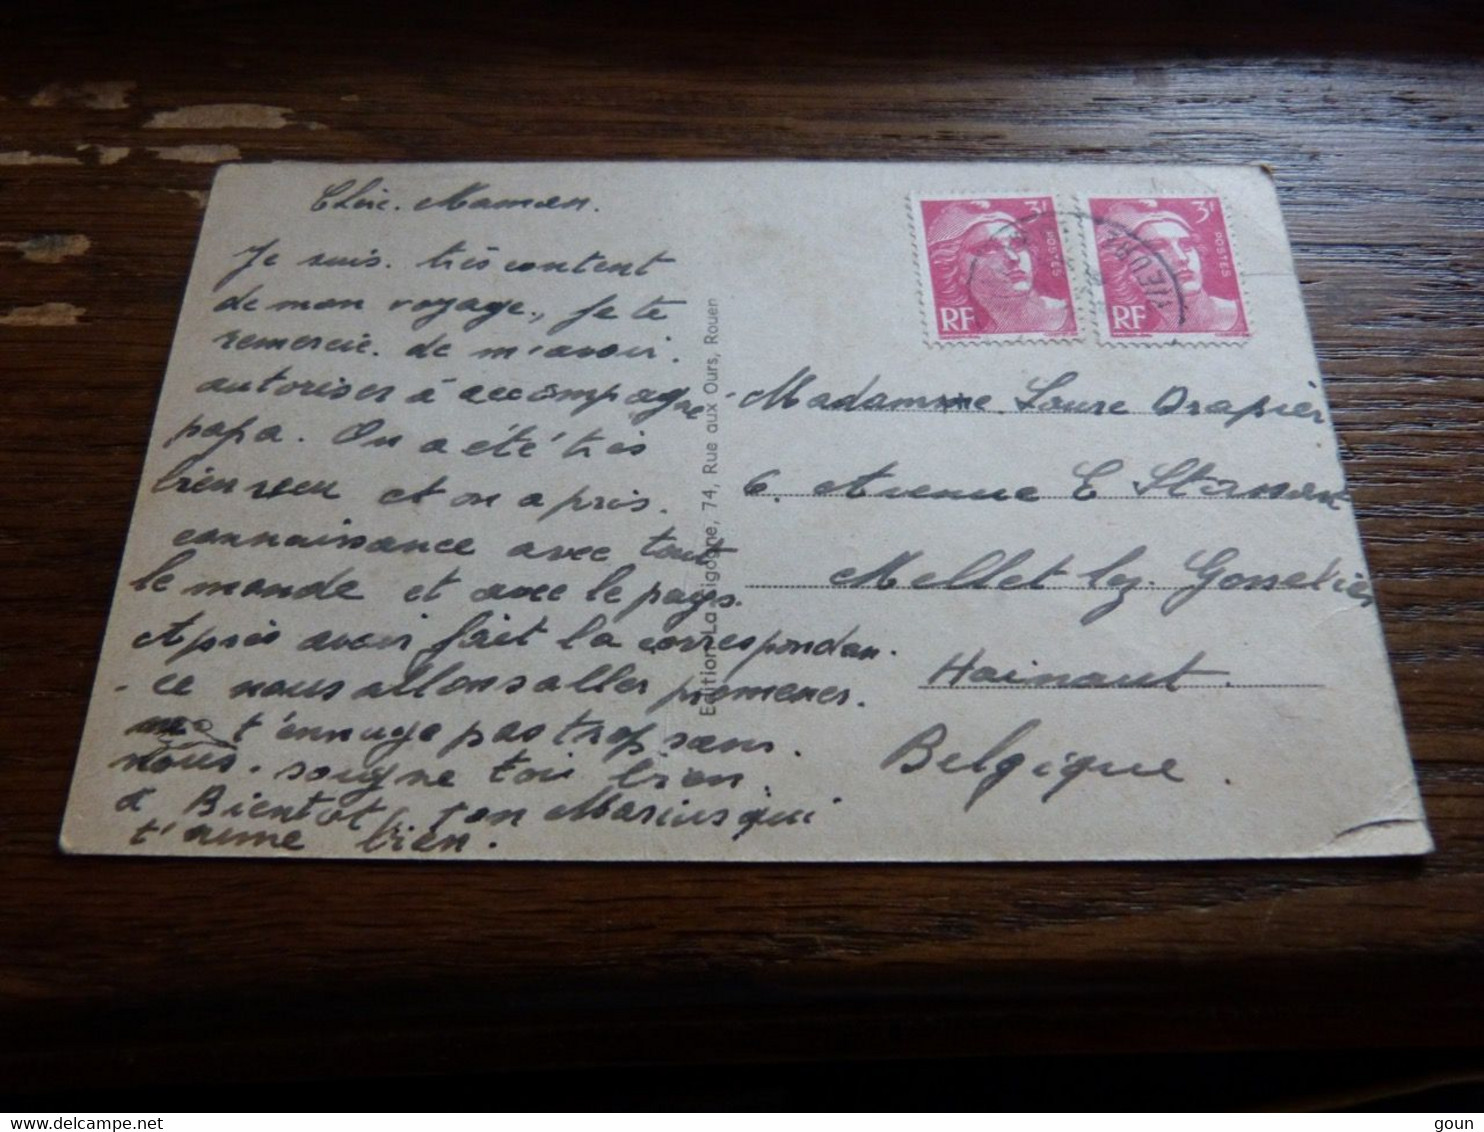 Chère Maman.
Je suis très content
de mon voyage, je te
remercie de m'avoir
autoriser à accompagné
papa. On a été très
bien reçu et on a pris
connaissance avec tout
le monde et avec le pays.
Après avoir fait la correspondan-
-ce nous allons aller promener.
t'ennuye pas trop sans
nous. soigne toi bien.
à Bientot ton Marius qui
t'aime bien.
Edition La Cigogne, 74, Rue aux Ours, Rouen
3F
POSTES
RF
3F
POSTES
RF
Madamme Laure Drapier
6. Avenue E
Mellet lez Gosselies
Hainaut
Belgique.
goun